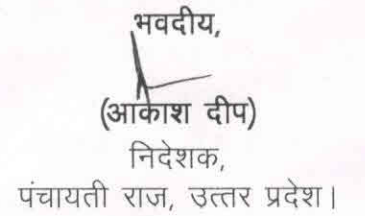 भवदीय,
(आकाश दीप)
निदेशक,
पंचायती राज, उत्तर प्रदेश।